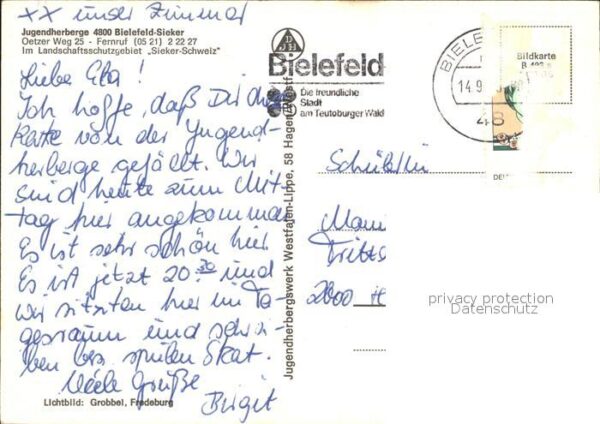 xx unser Zimmer
Jugendherberge 4800 Bielefeld-Sieker
Oetzer Weg 25 - Fernruf (05 21) 2 22 27
Im Landschaftsschutzgebiet „Sieker-Schweiz"
Liebe
Ich hoffe, daß Dir die
Karte von der Jugend-
herberge gefällt. Wir
sind heute zum Mit-
tag hier angekommen
Es ist sehr schön hier
Es ist jetzt 20.30 und
wir sitzten hier im Ta-
gesraum und schrei-
ben bzs. spielen Skat.
Viele Grüße
Birgit
Lichtbild: Grobbel, Fredeburg
Jugendherbergswerk Westfalen-Lippe, 58 Hagen/Westf
Bielefeld
Die freundliche
Stadt
am Teutoburger Wald
BIELE
14.9
48
Bildkarte
Schülerin
2000 H
privacy protection
Datenschutz